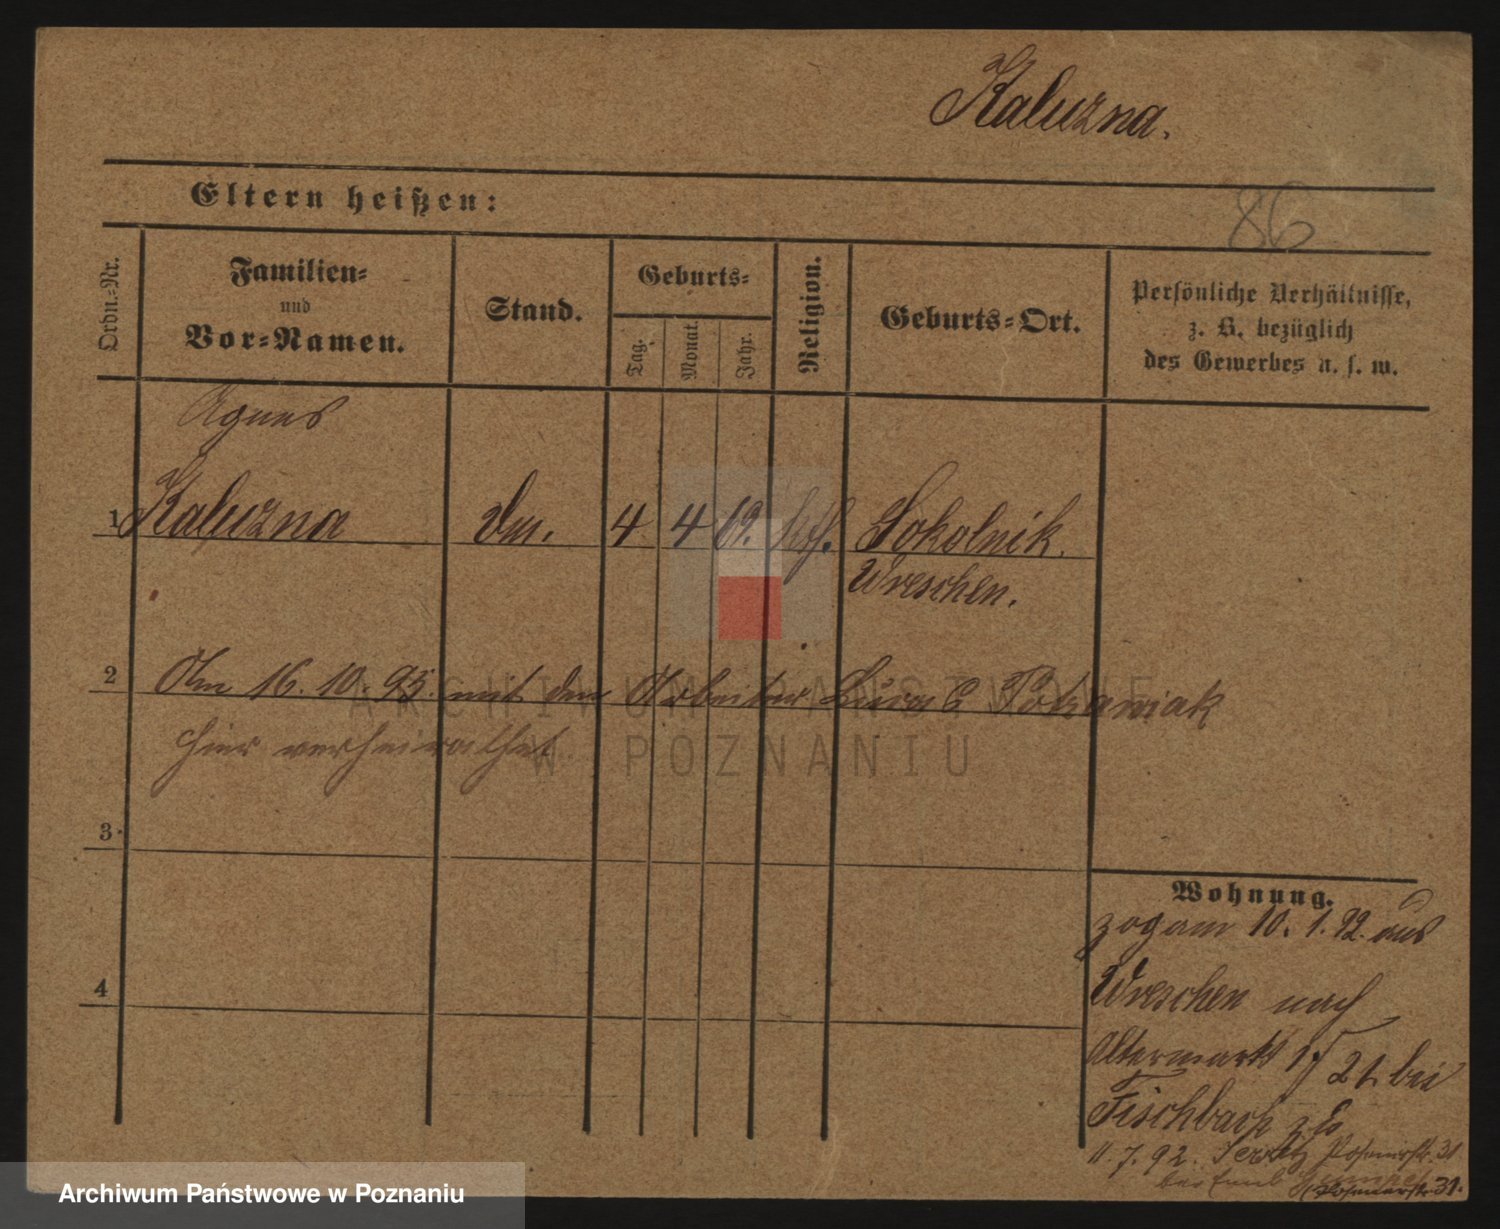 Kaluzna.
Eltern heißen:
86
Ordn.-Nr.
Familien-
und
Vor-Namen.
Stand.
Geburts-
Tag.
Monat.
Jahr.
Religion.
Geburts-Ort.
Persönliche Verhältnisse,
z. B. bezüglich
des Gewerbes u. s. w.
Agnes
1 Kaluzna 4 4 69. kth. Sokolnik.
Wreschen.
2 Am 16. 10. 95. mit dem Arbeiter Lucas
hier verheirathet
3
4
Wohnung.
zog am 10. 1. 92. aus
Wreschen nach
Altermarkt 21. bei
Fischbach
11. 7. 92. Posenerstr. 31
bei Emil
Posenerstr. 31.
ARCHIWUM PAŃSTWOWE
W POZNANIU
Archiwum Państwowe w Poznaniu